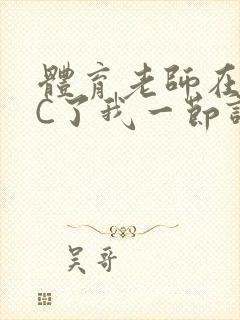 體育老師在
C了我一節
吳哥